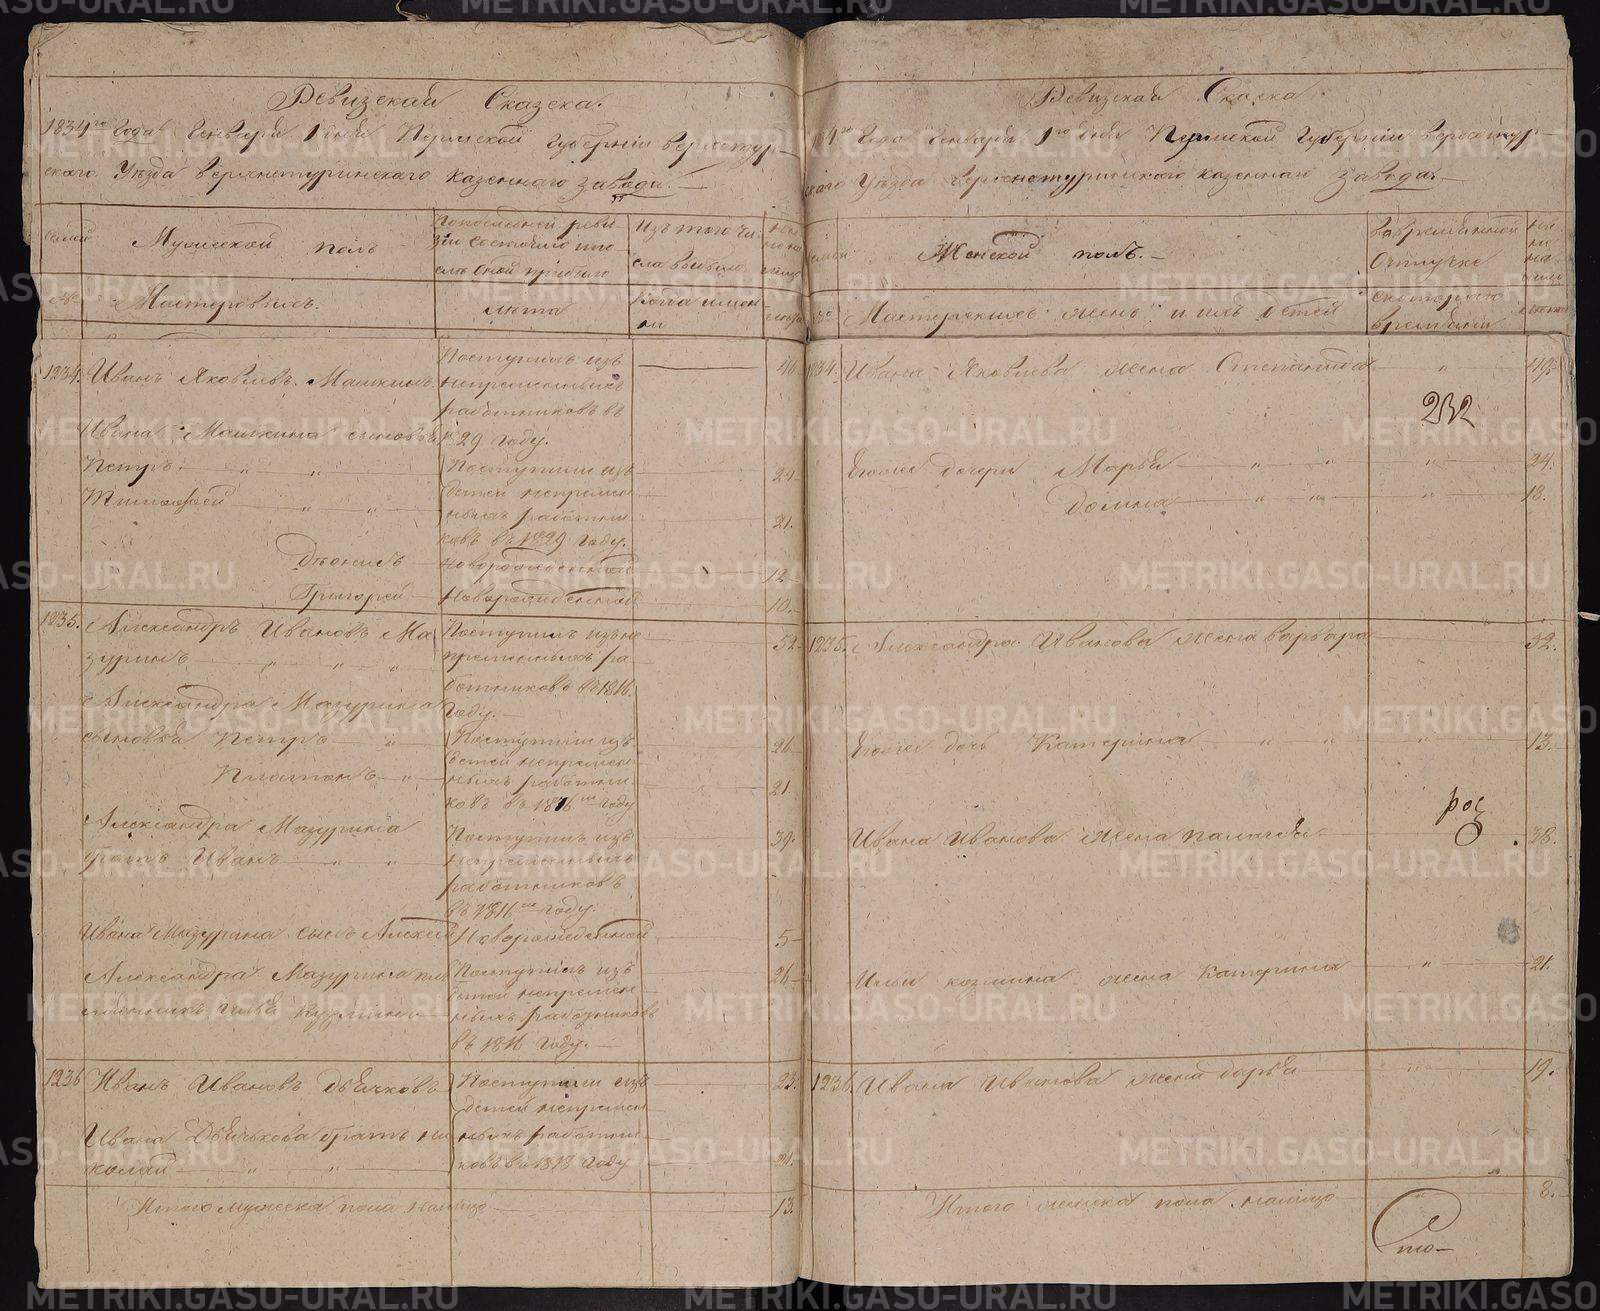 Ревизская Сказка.
1834го Года Генваря 1 дня Пермской Губернии Верхотур-
скаго Уезда Верхнетуринскаго казеннаго завода.
Семей Мужеской полъ
Мастеровыхъ.
По последней реви-
зии состояло и по-
сле оной прибыло
лета
Изъ того чи-
сла выбыло
когда имян
но
1234. Иванъ Яковлевъ Машкинъ Поступилъ изъ непременныхъ работниковъ въ 1829 году. 46
Ивана Машкина сыновья
Петръ 24
Тимофей 21.
Поступили изъ
детей непремен
ныхъ работни
ковъ въ 1829 году.
Деонисъ новорожденный 12
Григорей новорожденный 10.
1235. Александръ Ивановъ Ма
зуринъ 52
Поступилъ изъ не
пременныхъ ра
ботниковъ въ 1816.
году.
Александра Мазурина
сыновья Петръ 26
Платонъ 21.
Поступили изъ
детей непремен
ныхъ работни
ковъ въ 1816 году
Александра Мазурина
братъ Иванъ 39.
Поступилъ изъ
непременныхъ
работниковъ
въ 1816 году.
Ивана Мазурина сынъ Алексей Новорожденной 5
Александра Мазурина пле
мянникъ Илья 26
Поступилъ изъ
детей непремен
ныхъ работниковъ
въ 1816 году.
1236 Иванъ Ивановъ Дьячковъ 23.
Поступили изъ
детей непремен
ныхъ работни
ковъ въ 1818 году
Ивана Дьячкова братъ Ни
колай 21.
Итого мужеска пола налицо 13.
Ревизская Сказка
1834го Года Генваря 1го дня Пермской Губернии Верхотур-
скаго Уезда Верхнетуринскаго казеннаго завода.
Женской полъ.
Мастерскихъ женъ и ихъ детей
Во временной
отлучке
с котораго
времени
1234. Ивана Яковлева жена Степанида 49.
232
Ево же дочери Марья 24.
Домна 18.
1235. Александра Иванова жена Варвара 52.
Ево же дочь Катерина 13.
Ивана Иванова жена Палагея 38.
Ильи Козмина жена Катерина 21.
1236. Ивана Иванова жена Дарья 19.
Итого женска пола налицо 8.
METRIKI.GASO-URAL.RU